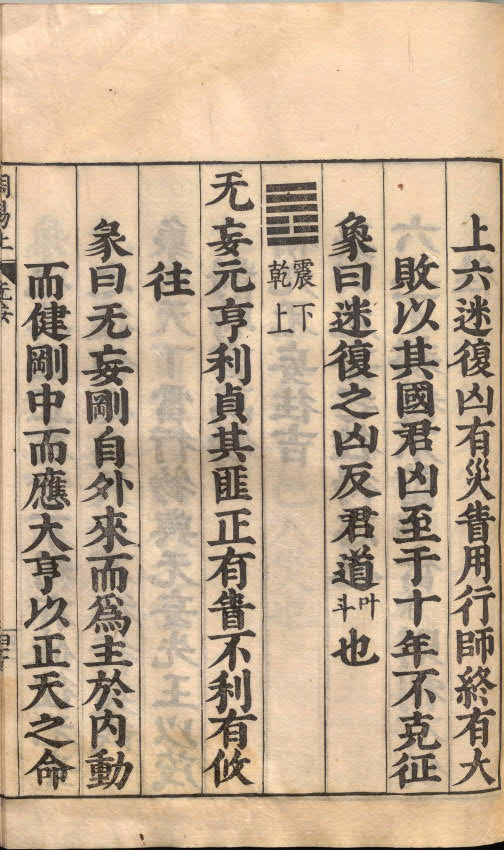 上六迷復凶有災眚用行師終有大
敗以其國君凶至于十年不克征
象曰迷復之凶反君道叶斗也
震下
乾上
无妄元亨利貞其匪正有眚不利有攸
往
彖曰无妄剛自外來而爲主於内動
而健剛中而應大亨以正天之命
周易上
无妄